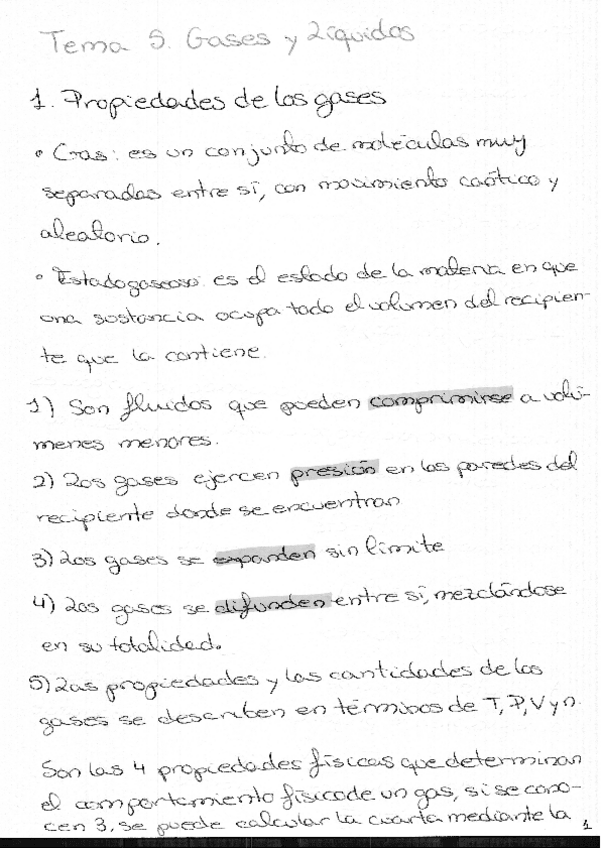 Tema 5. Gases y Líquidos
1. Propiedades de los gases
• Gas: es un conjunto de moléculas muy
separadas entre sí, con movimiento caótico y
aleatorio.
• Estado gaseoso: es el estado de la materia en que
una sustancia ocupa todo el volumen del recipien-
te que la contiene.
1) Son fluidos que pueden comprimirse a volú-
menes menores.
2) Los gases ejercen presión en las paredes del
recipiente donde se encuentran
3) Los gases se expanden sin límite
4) Los gases se difunden entre sí, mezclándose
en su totalidad.
5) Las propiedades y las cantidades de los
gases se describen en términos de T, P, V y n.
Son las 4 propiedades físicas que determinan
el comportamiento físico de un gas, si se cono-
cen 3, se puede calcular la cuarta mediante la
1